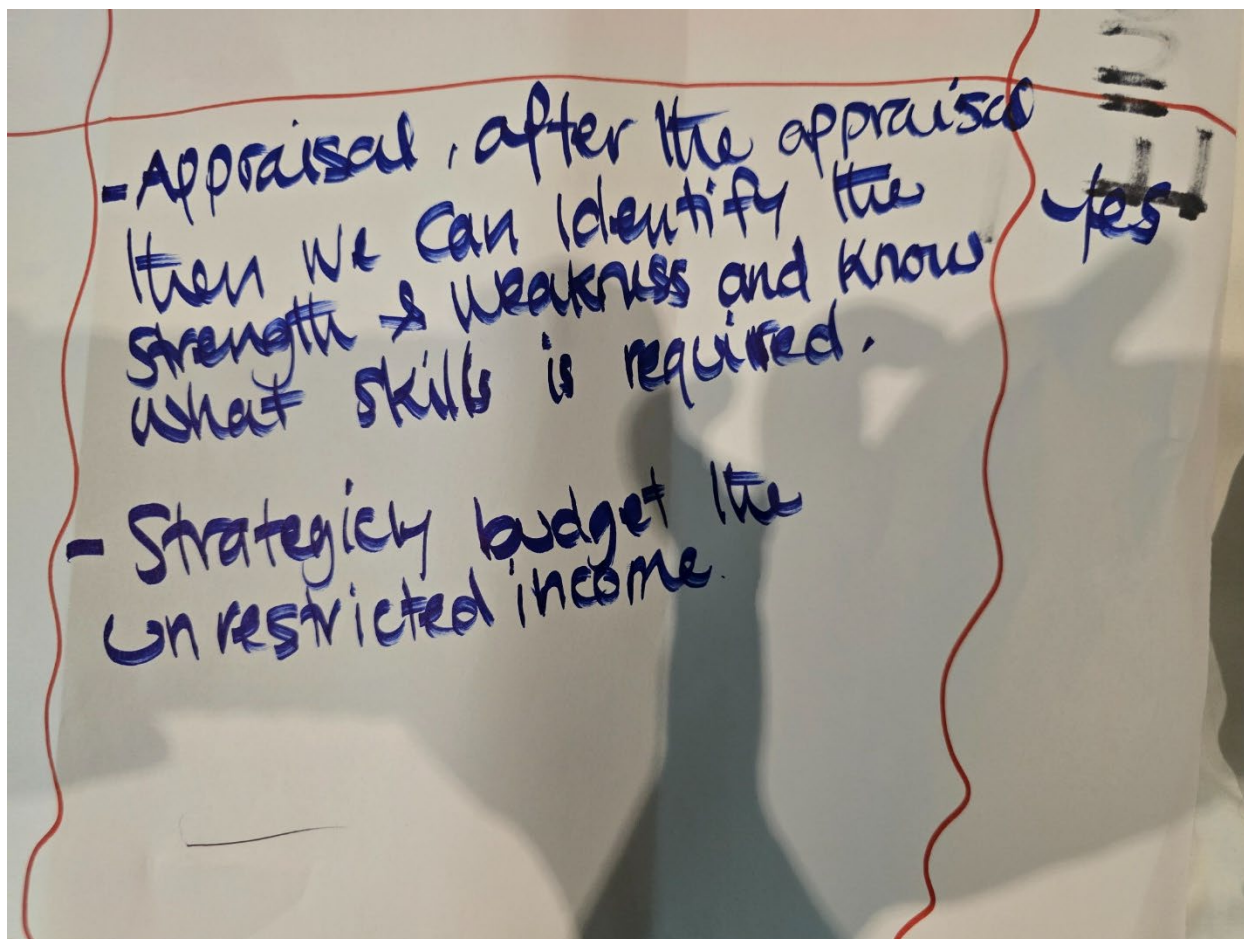 - Appraisal, after the appraisal
then we can identify the
strength & weakness and know
what skills is required.
Yes
- Strategicly budget the
unrestricted income.